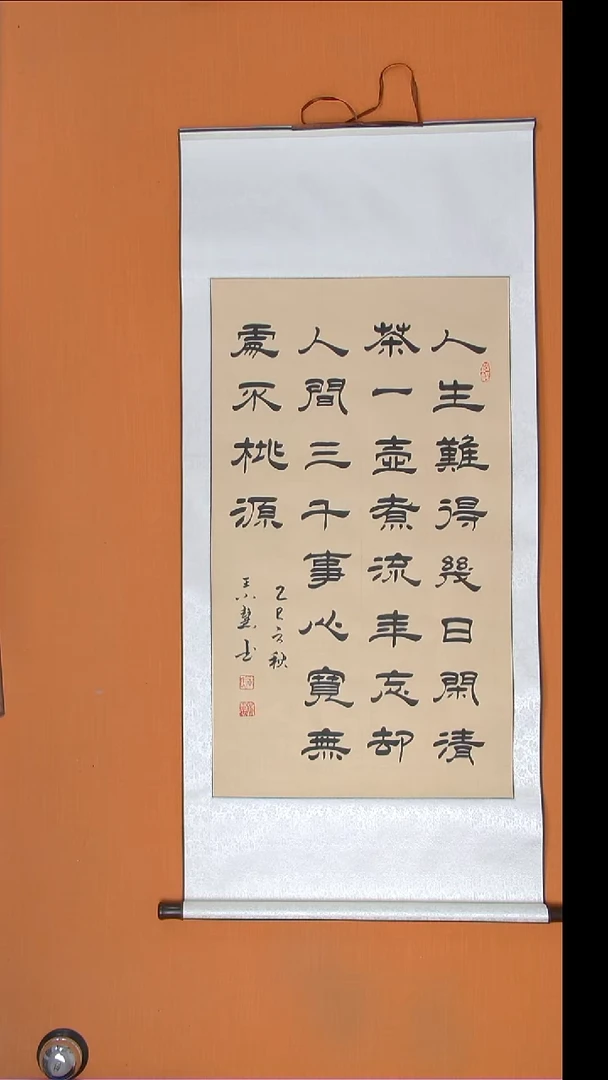 人生難得幾日閑清
茶一壺煮流年忘却
人間三千事心寬無
處不桃源
乙巳之秋